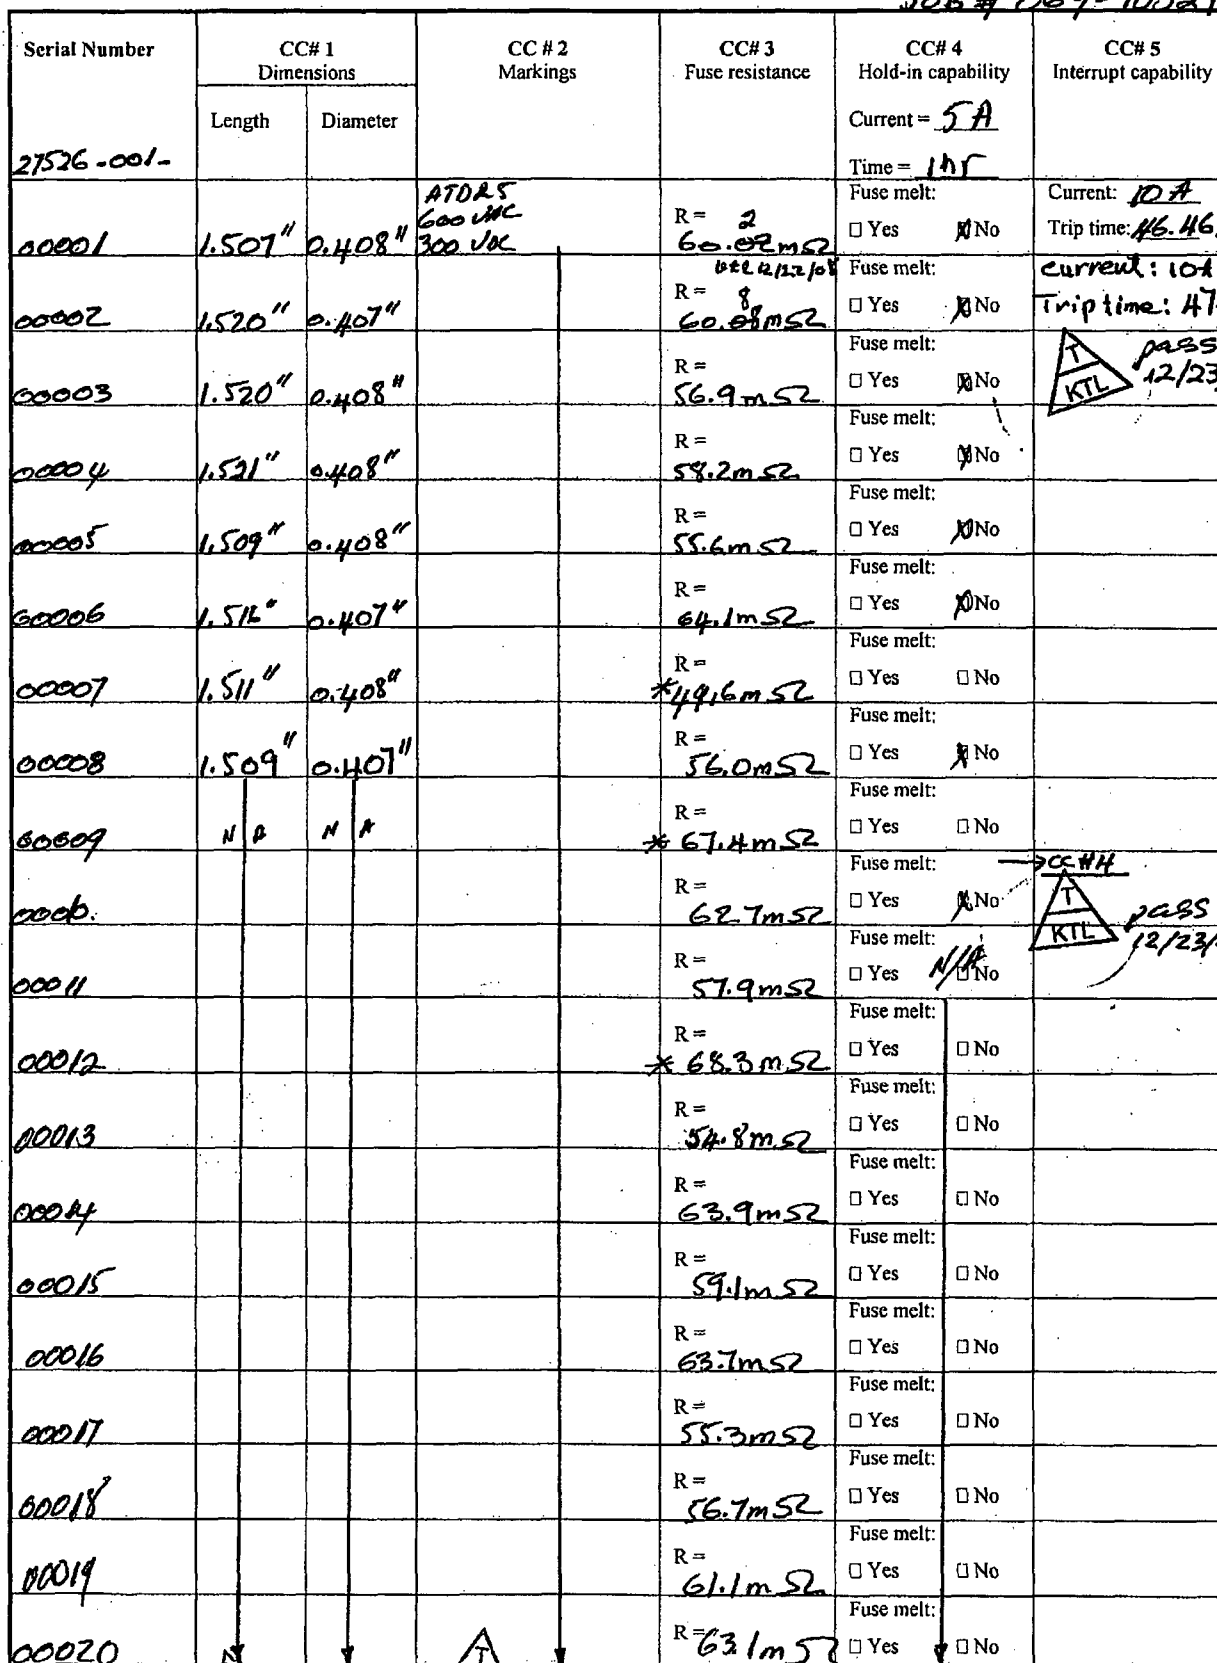 Serial Number
CC# 1
Dimensions
CC # 2
Markings
CC# 3
Fuse resistance
CC# 4
Hold-in capability
CC# 5
Interrupt capability
Length
Diameter
Current = 5A
Time = 1hr
27526-001-
00001
1.507"
0.408"
ATDR5
600 VAC
300 VDC
R = 2
60.02mΩ
12/22/08
Fuse melt:
□ Yes ☒ No
Current: 10 A
Trip time: 46.46
00002
1.520"
0.407"
R = 8
60.08mΩ
Fuse melt:
□ Yes ☒ No
Current: 10A
Trip time: 47
00003
1.520"
0.408"
R =
56.9mΩ
Fuse melt:
□ Yes ☒ No
T
KTL
pass
12/23
00004
1.521"
0.408"
R =
58.2mΩ
Fuse melt:
□ Yes ☒ No
00005
1.509"
0.408"
R =
55.6mΩ
Fuse melt:
□ Yes ☒ No
00006
0.407"
R =
64.1mΩ
Fuse melt:
□ Yes ☒ No
00007
1.511"
0.408"
R =
*49.6mΩ
Fuse melt:
□ Yes □ No
00008
1.509"
0.407"
R =
56.0mΩ
Fuse melt:
□ Yes ☒ No
00009
N A
N A
R =
* 67.4mΩ
Fuse melt:
□ Yes □ No
R =
62.7mΩ
Fuse melt:
□ Yes ☒ No
→CC#4
T
KTL
pass
12/23/
00011
R =
57.9mΩ
Fuse melt:
□ Yes N/A □ No
00012
R =
* 68.3mΩ
Fuse melt:
□ Yes □ No
00013
R =
54.8mΩ
Fuse melt:
□ Yes □ No
00014
R =
63.9mΩ
Fuse melt:
□ Yes □ No
00015
R =
59.1mΩ
Fuse melt:
□ Yes □ No
00016
R =
63.7mΩ
Fuse melt:
□ Yes □ No
00017
R =
55.3mΩ
Fuse melt:
□ Yes □ No
00018
R =
56.7mΩ
Fuse melt:
□ Yes □ No
00019
R =
61.1mΩ
Fuse melt:
□ Yes □ No
00020
T
R = 63.1mΩ
Fuse melt:
□ Yes □ No